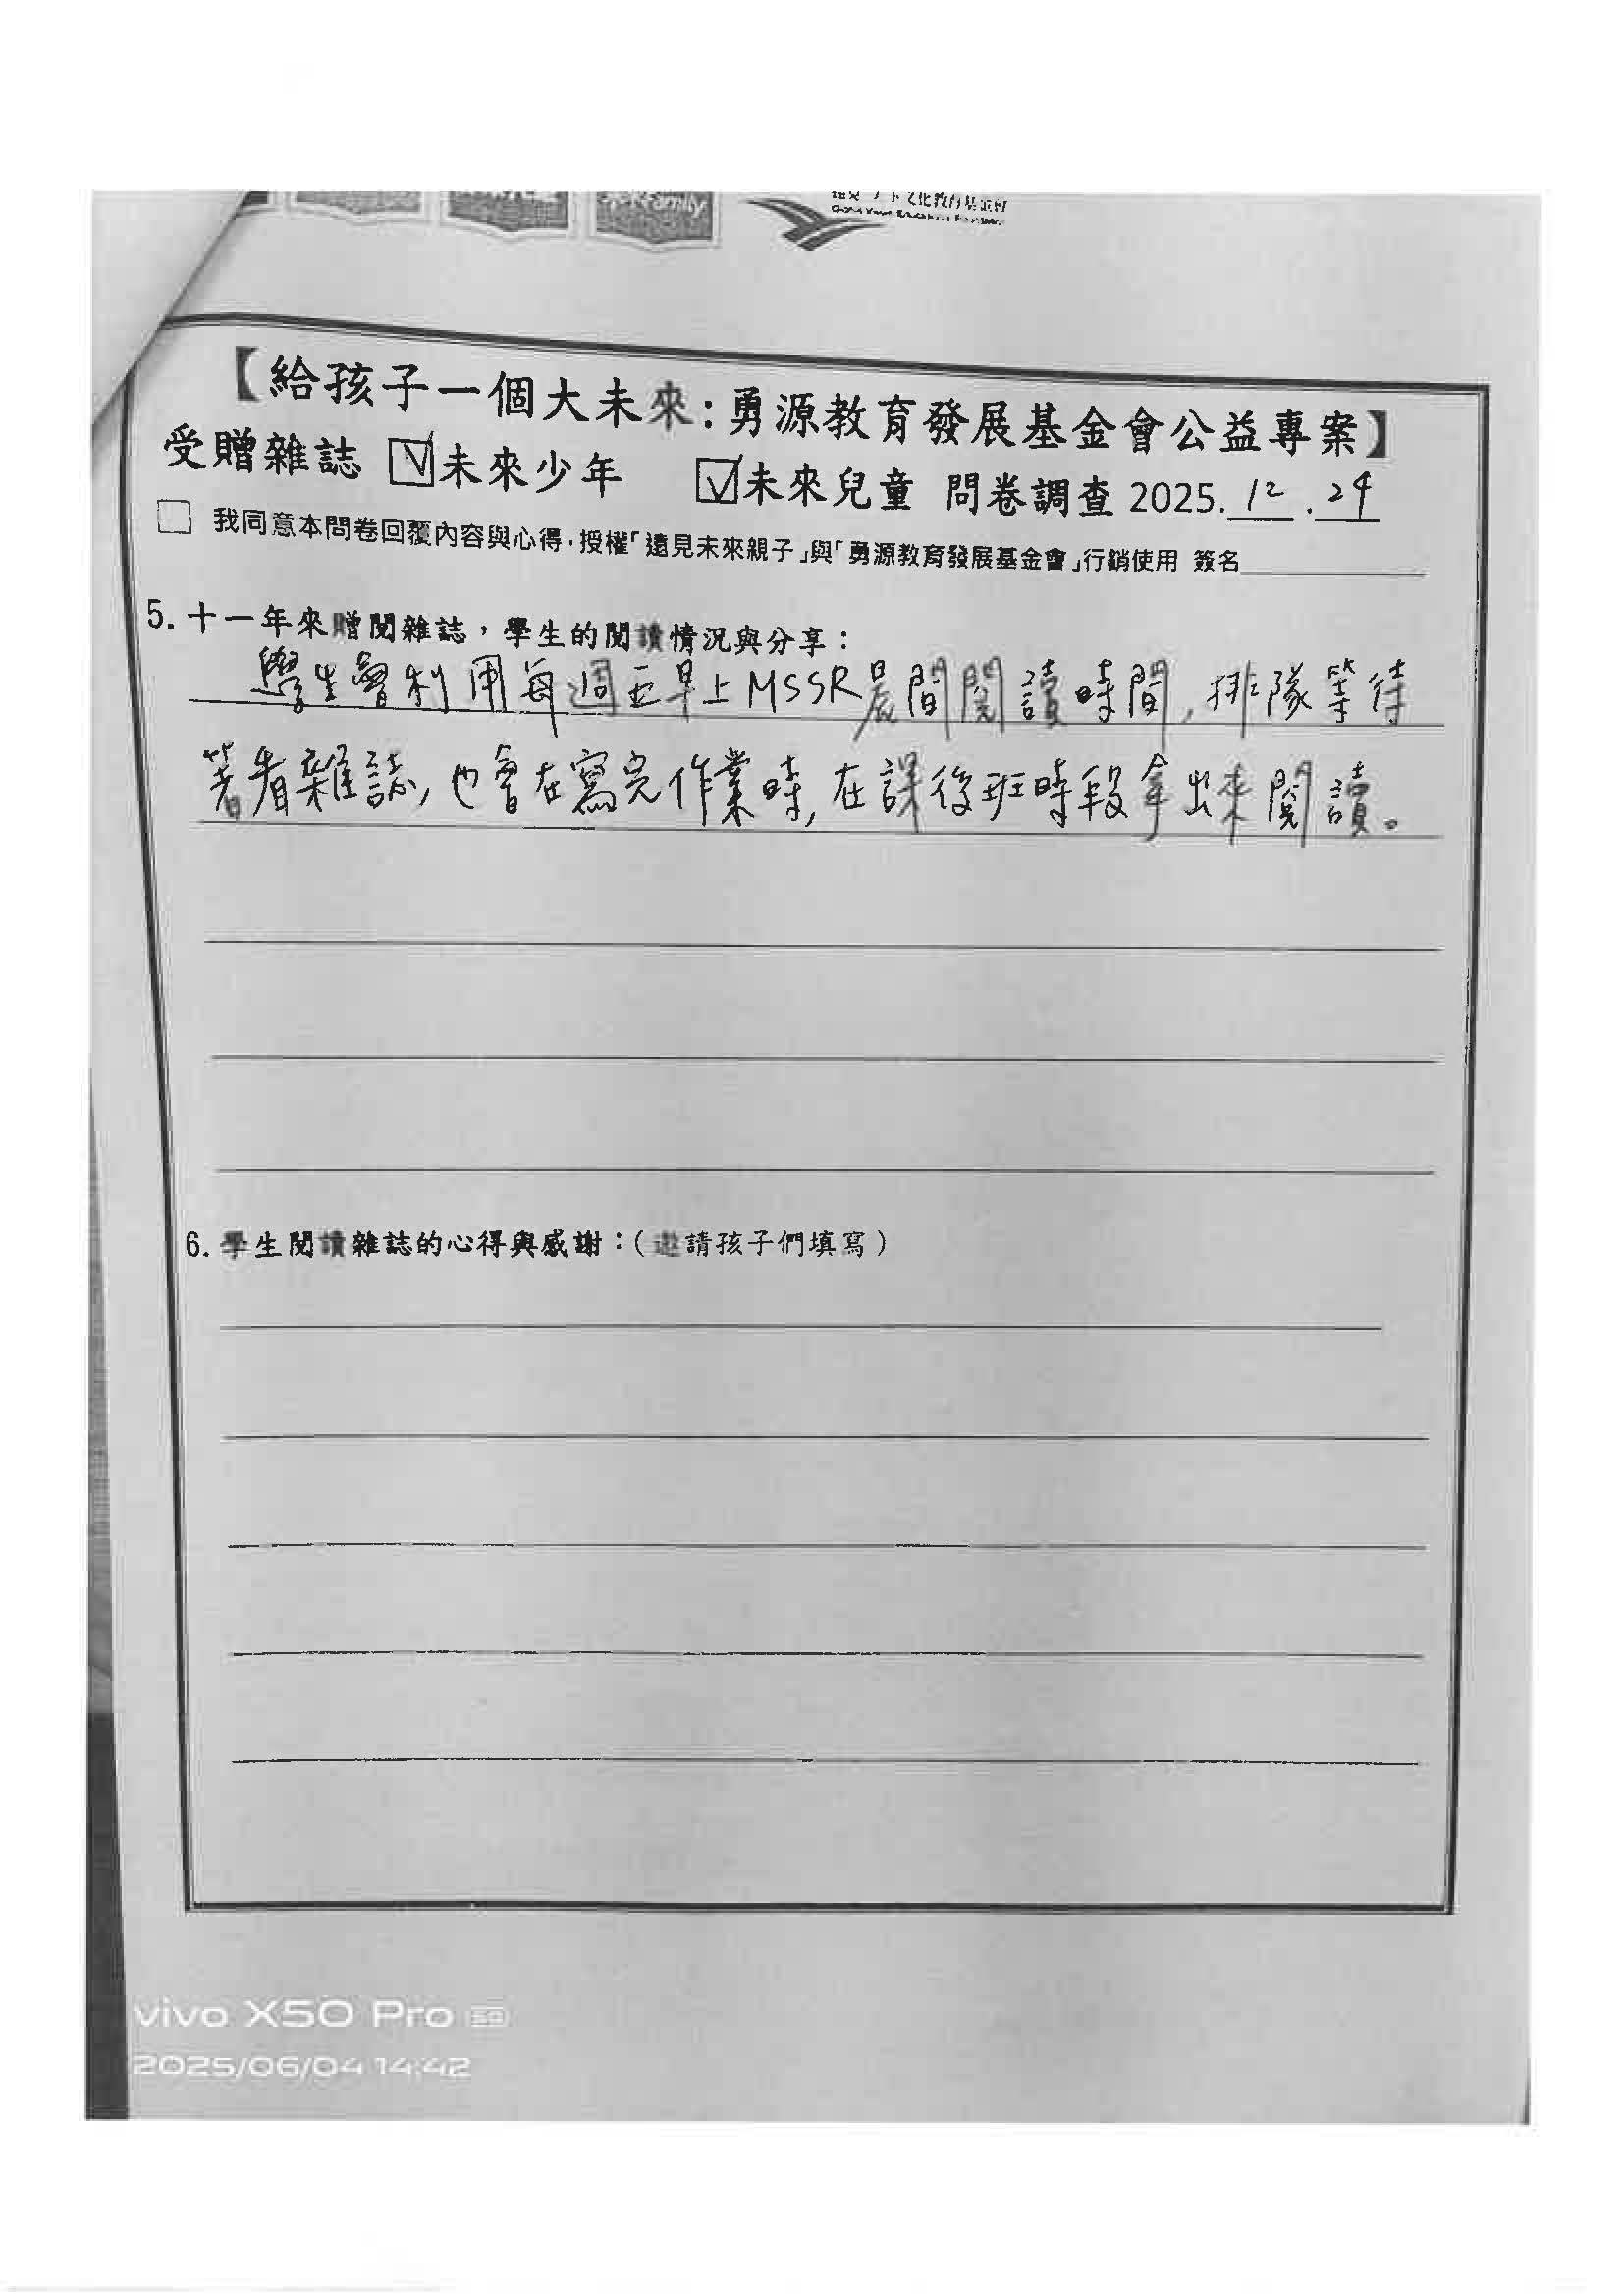 Family
文化教育基金會
【給孩子一個大未來:勇源教育發展基金會公益專案】
受贈雜誌 ☑未來少年 ☑未來兒童 問卷調查 2025.12.24
☐ 我同意本問卷回覆內容與心得,授權「遠見未來親子」與「勇源教育發展基金會」行銷使用 簽名
5. 十一年來贈閱雜誌,學生的閱讀情況與分享:
學生會利用每週五早上MSSR晨間閱讀時間,排隊等待
著看雜誌,也會在寫完作業時,在課後班時段拿出來閱讀。
6. 學生閱讀雜誌的心得與感謝:(邀請孩子們填寫)
vivo X50 Pro 5G
2025/06/04 14:42